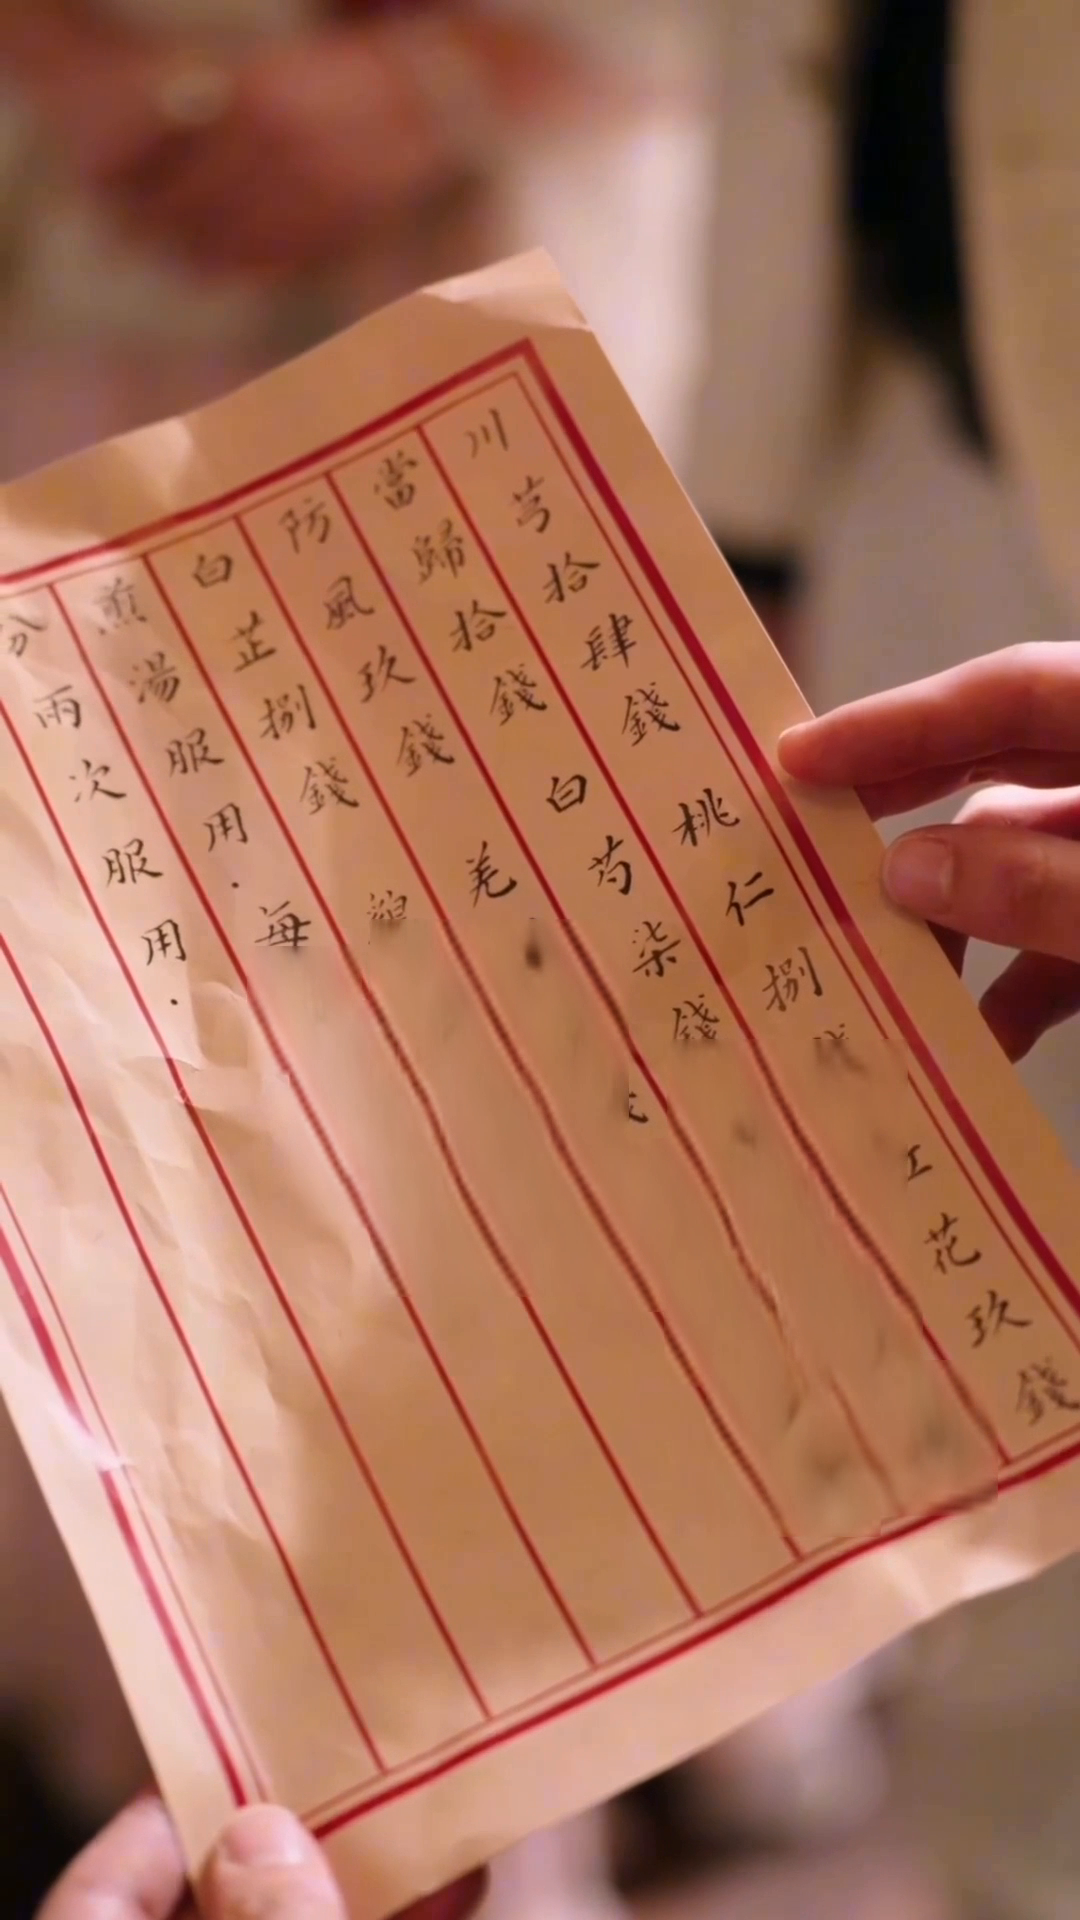 川芎拾肆錢 桃仁捌 花玖錢
當歸拾錢 白芍柒錢
防風玖錢 羌
白芷捌錢
煎湯服用．每
分兩次服用．